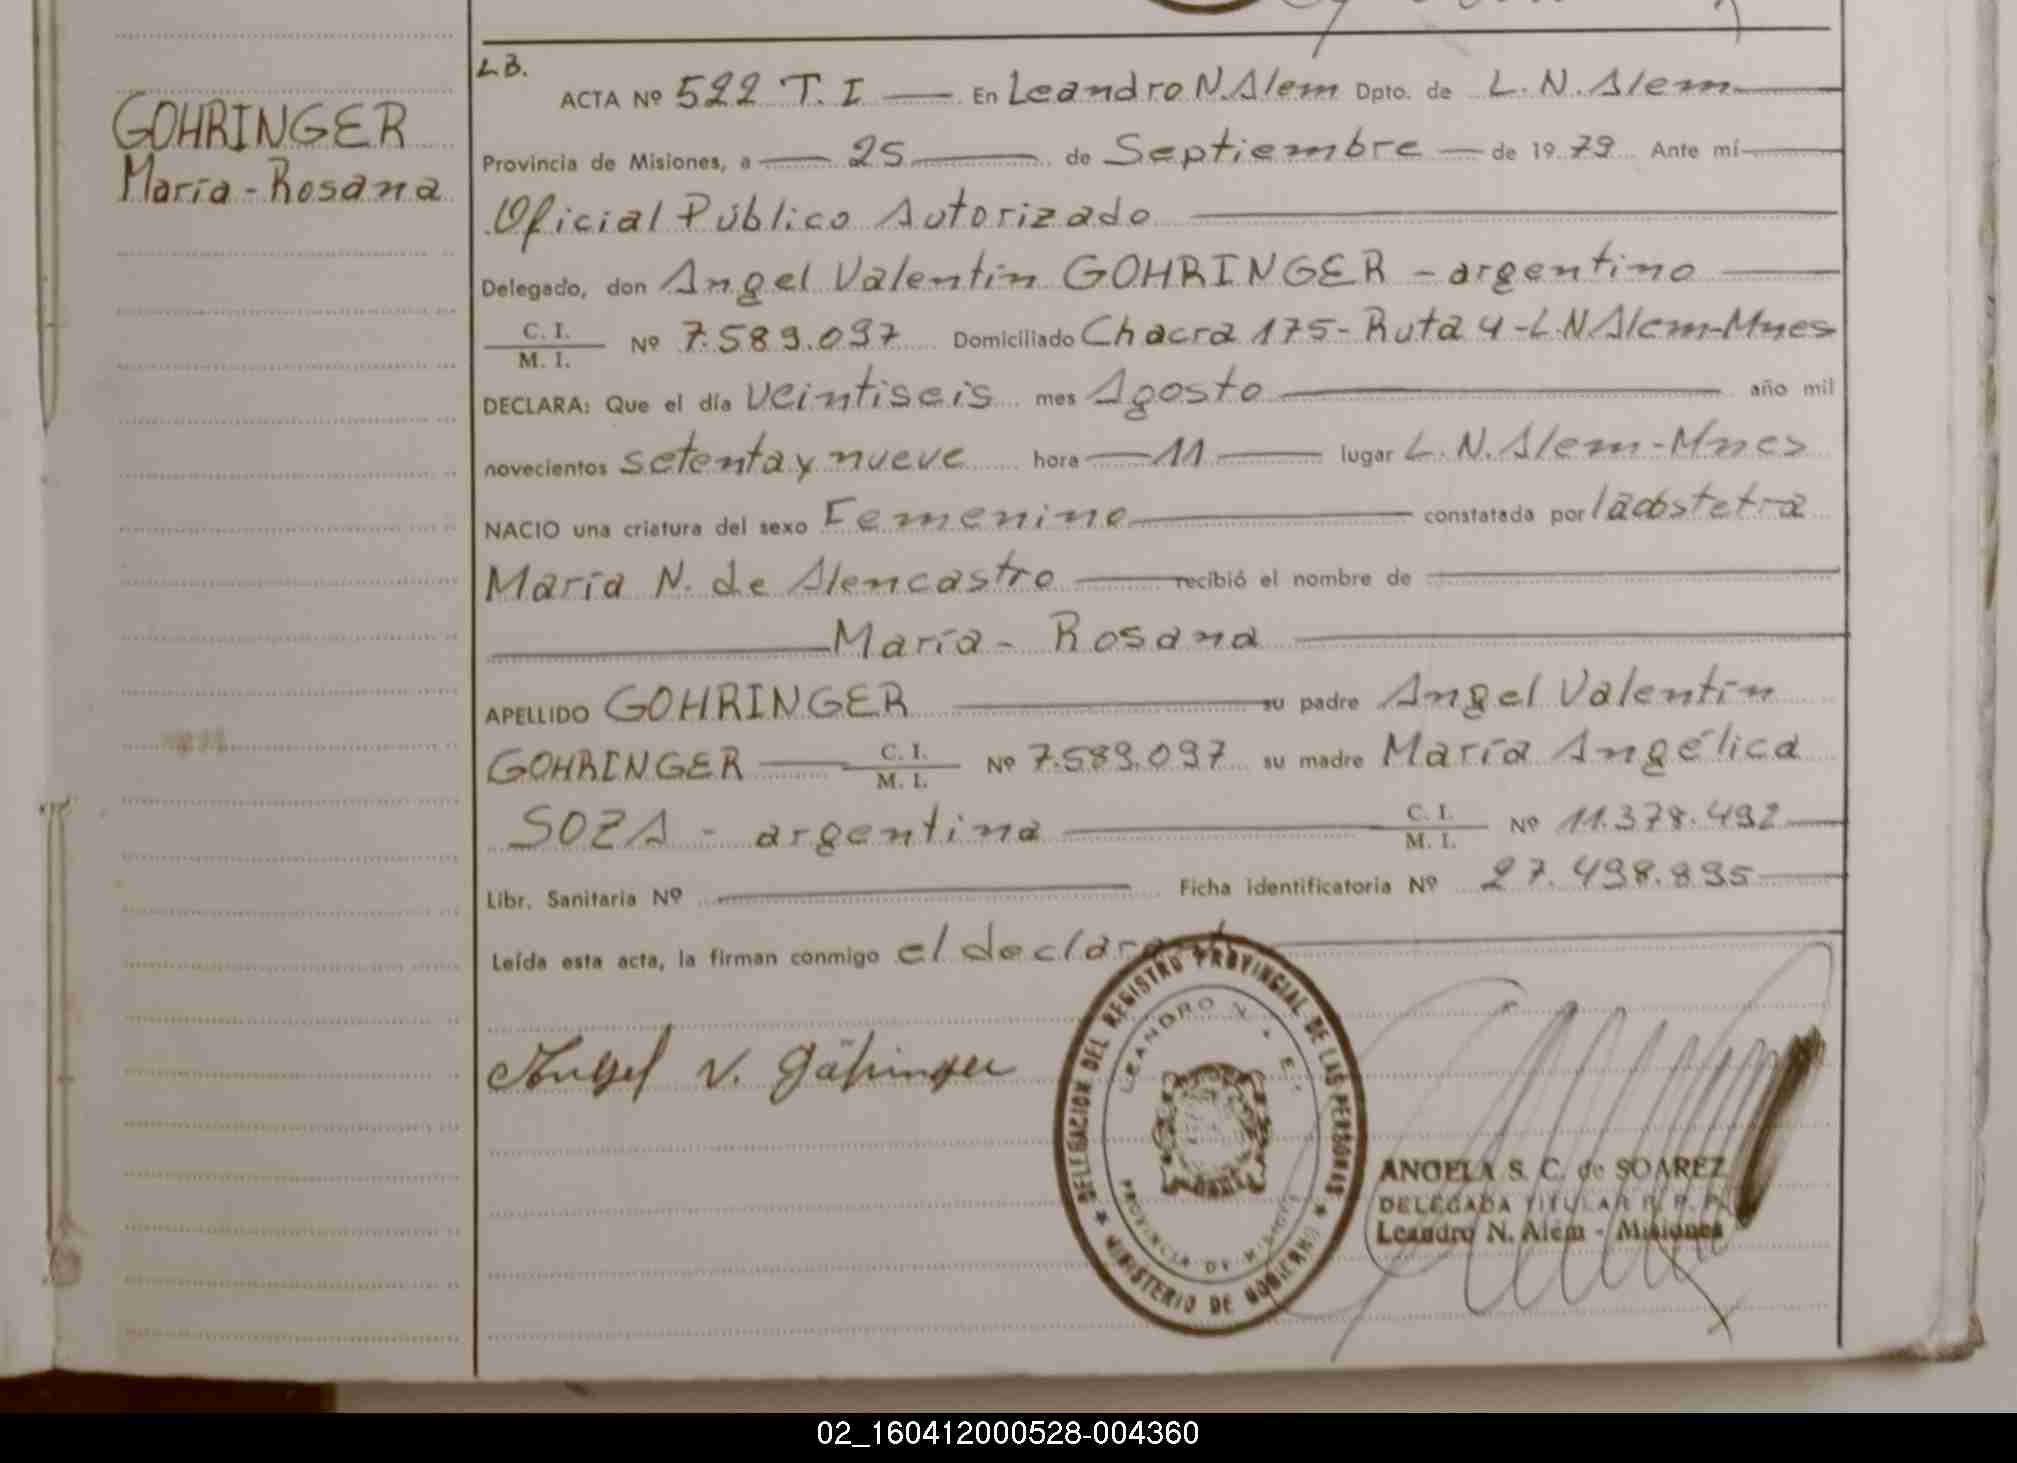 L B.
GOHRINGER
María - Rosana
ACTA Nº 522 T. I — En Leandro N. Alem Dpto. de L. N. Alem
Provincia de Misiones, a — 25 — de Septiembre — de 1979 Ante mí
Oficial Público Autorizado
Delegado, don Angel Valentín GOHRINGER - argentino
C. I.
M. I. Nº 7.589.097 Domiciliado Chacra 175 - Ruta 4 - L. N Alem - Mnes
DECLARA: Que el día veintiseis mes Agosto — año mil
novecientos setenta y nueve hora — 11 — lugar L. N. Alem - Mnes
NACIO una criatura del sexo Femenino — constatada por la obstetra
María N. de Alencastro — recibió el nombre de
María - Rosana
APELLIDO GOHRINGER — su padre Angel Valentín
GOHRINGER — C. I.
M. I. Nº 7.589.097 su madre María Angélica
SOZA - argentina — C. I.
M. I. Nº 11.378.492
Libr. Sanitaria Nº — Ficha identificatoria Nº 27.498.895
Leída esta acta, la firman conmigo el
Angel V. Göhringer
DELEGACION DEL REGISTRO PROVINCIAL DE LAS PERSONAS
MINISTERIO DE GOBIERNO
LEANDRO N.
PROVINCIA DE MISIONES
ANGELA S. C. de SOAREZ
DELEGADA TITULAR R. P. P.
Leandro N. Alem - Misiones
02_160412000528-004360